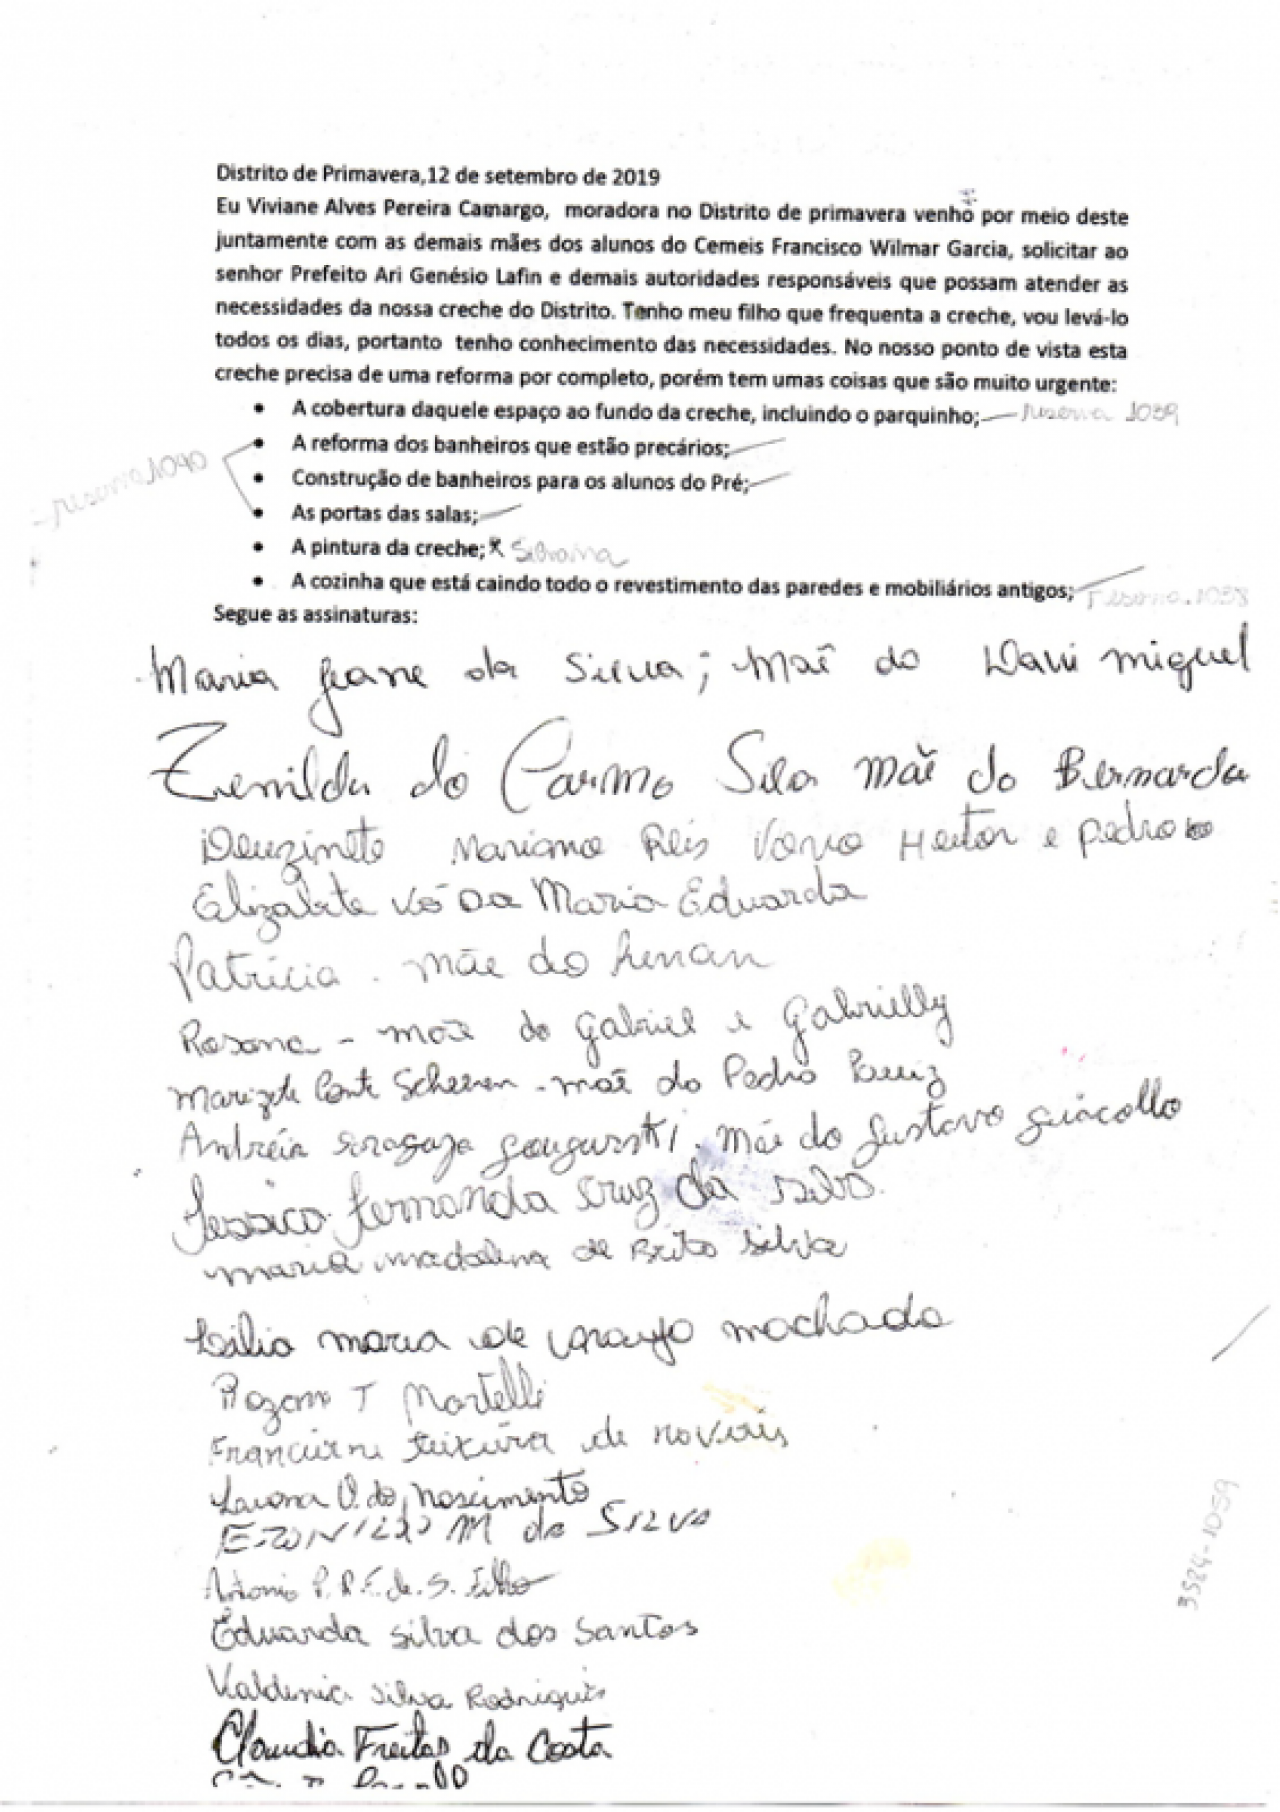 Distrito de Primavera,12 de setembro de 2019
Eu Viviane Alves Pereira Camargo, moradora no Distrito de primavera venho por meio deste
juntamente com as demais mães dos alunos do Cemeis Francisco Wilmar Garcia, solicitar ao
senhor Prefeito Ari Genésio Lafin e demais autoridades responsáveis que possam atender as
necessidades da nossa creche do Distrito. Tenho meu filho que frequenta a creche, vou levá-lo
todos os dias, portanto tenho conhecimento das necessidades. No nosso ponto de vista esta
creche precisa de uma reforma por completo, porém tem umas coisas que são muito urgente:
• A cobertura daquele espaço ao fundo da creche, incluindo o parquinho; reserva 1039
• A reforma dos banheiros que estão precários;
reserva 1040
• Construção de banheiros para os alunos do Pré;
• As portas das salas;
• A pintura da creche; x Silvana
• A cozinha que está caindo todo o revestimento das paredes e mobiliários antigos; reserva.1038
Segue as assinaturas:
Maria Jeane da Silva; Mãe do Davi miguel
Zenilda do Carmo Silva mãe do Bernarda
Deuzinete Mariano Reis Heitor e pedro
Elizabete vó Da Maria Eduarda
Patrícia. mãe do Renan
Rosane - mãe do gabriel e gabrielly
Marizete Conte - mãe do Pedro
Andréia mãe do Gustavo
Jessica Fernanda Cruz da Silva.
maria madalena de Brito Silva
maria de Araujo machado
T Martelli
Teixeira de novais
do Nascimento
M da Silva
Antonio P.R.F. de. S. Filho
Eduarda Silva dos Santos
Valdenia Silva Rodrigues
Claudia Freitas da Costa
3524-1059